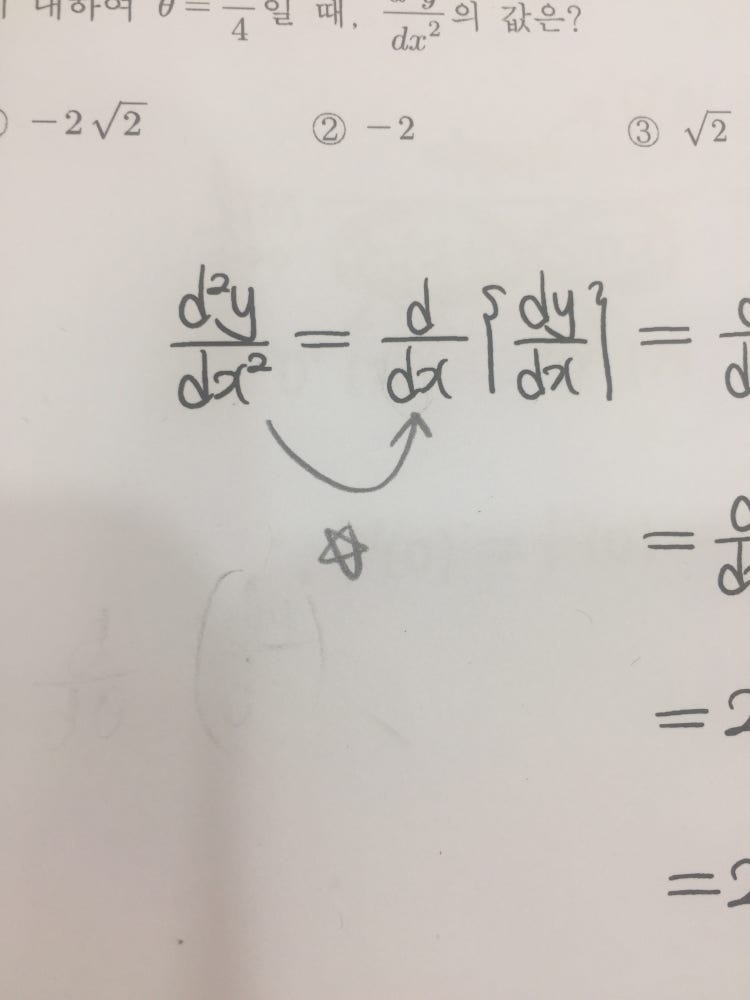 대하여 θ = /4 일 때, d²y/dx² 의 값은?
−2√2 ② −2 ③ √2
d²y/dx² = d/dx {dy/dx} =
=
= 2
= 2